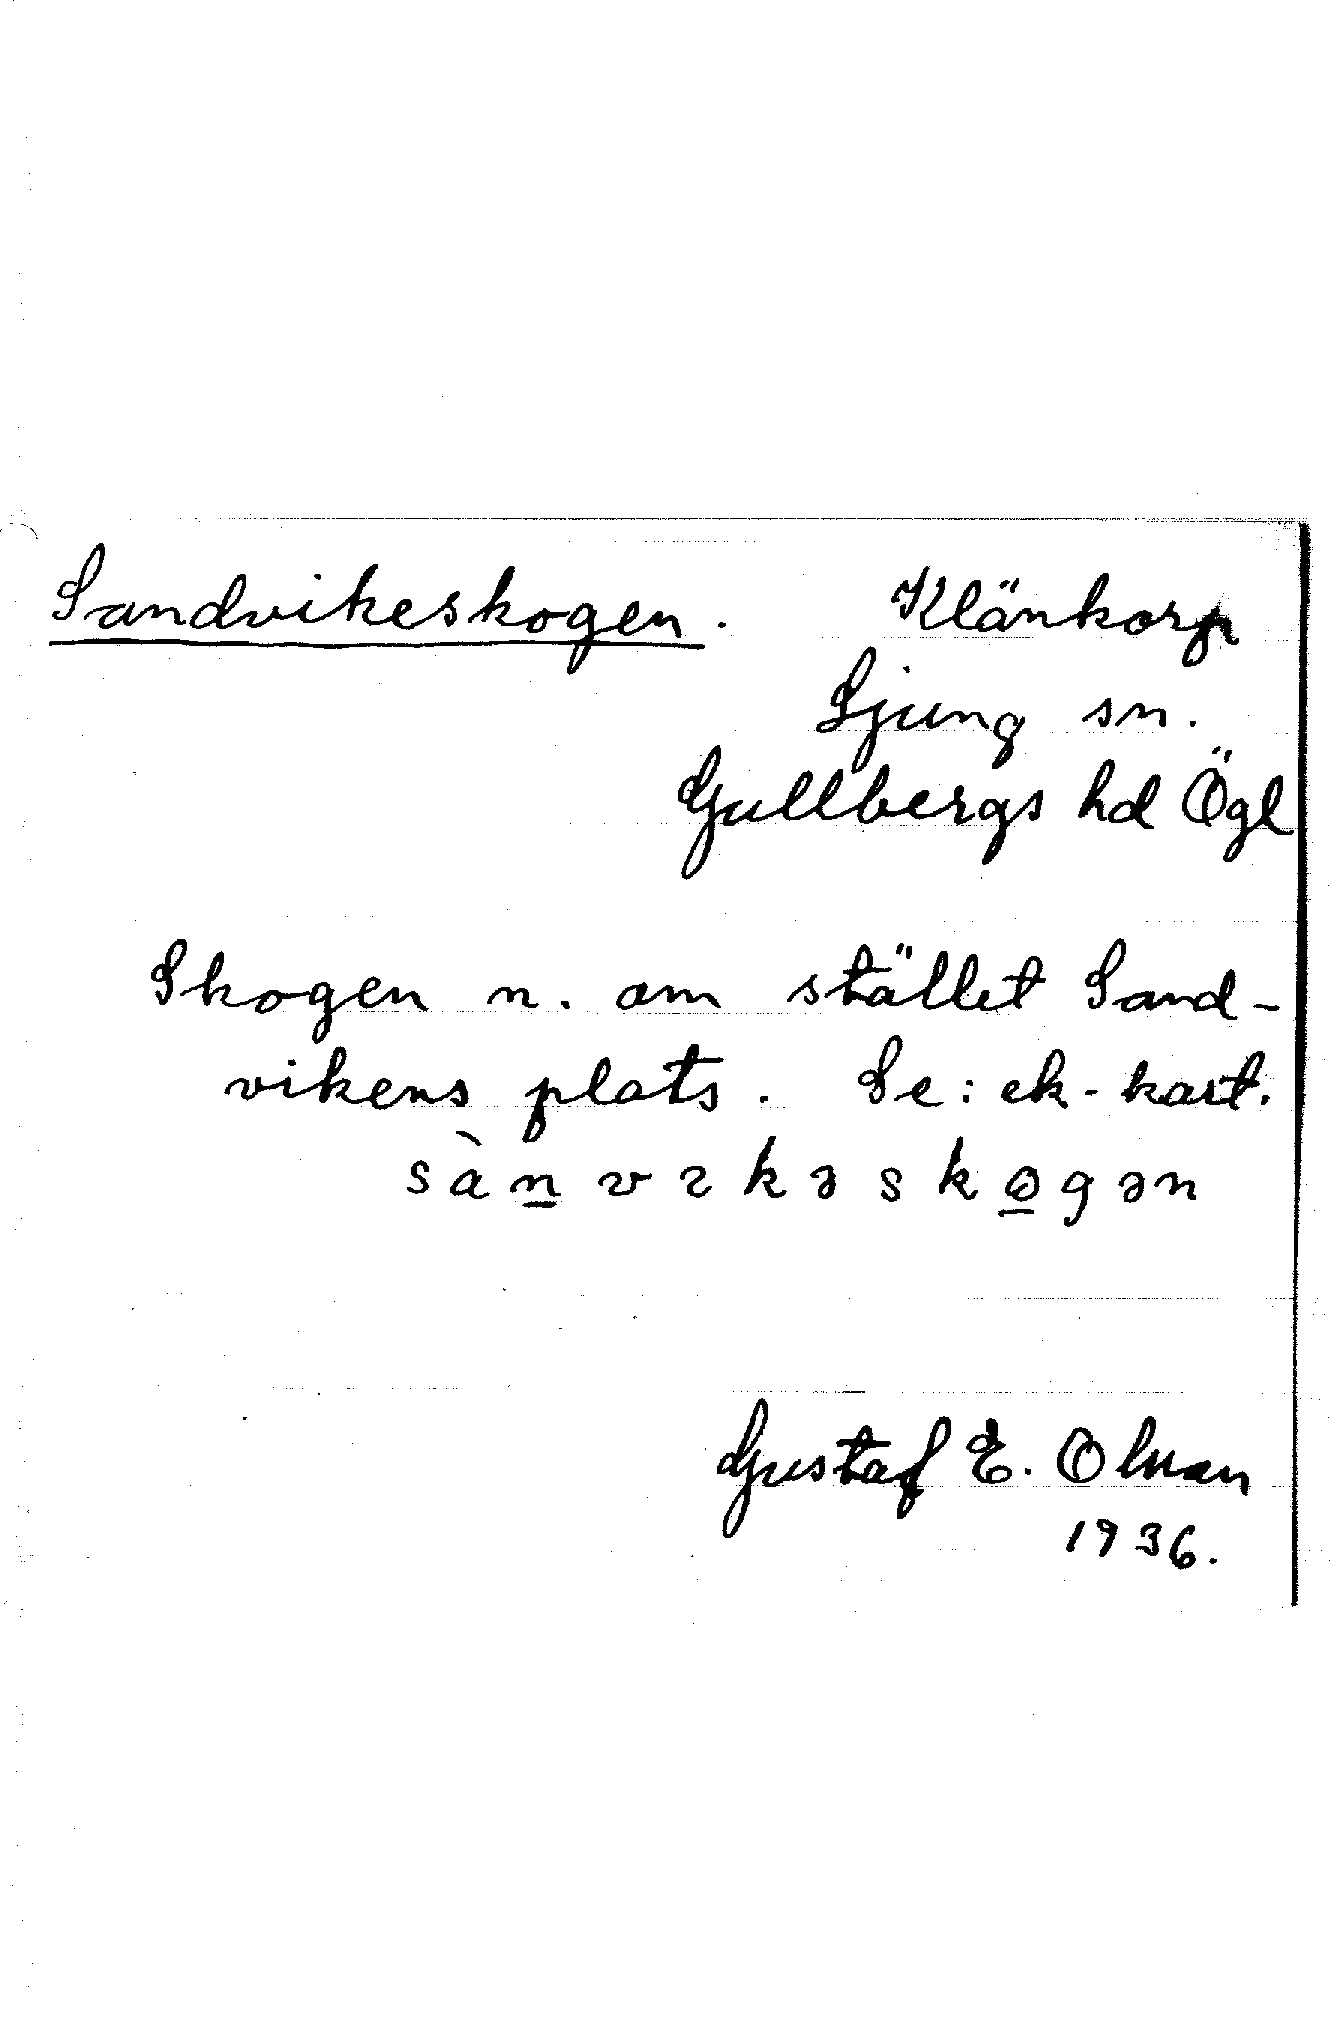 Sandvikeskogen. Klänkorp
Ljung sn.
Gullbergs hd Ögl
Skogen n. om stället Sand-
vikens plats. Se: ek-kart.
sànvıkəskogən
Gustaf E. Olman
1936.